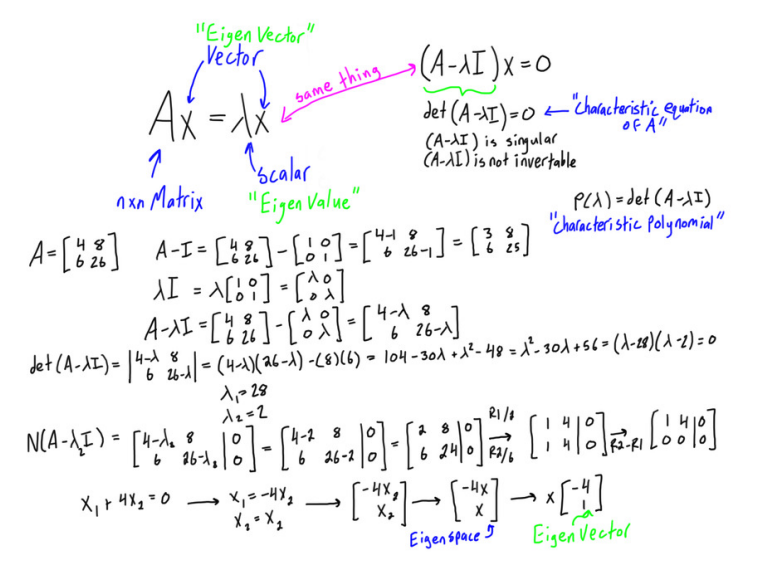 "Eigen Vector"
Vector
Ax = λx
same thing
(A-λI)x = 0
det(A-λI) = 0 ← "Characteristic equation of A"
(A-λI) is singular
(A-λI) is not invertable
n×n Matrix
scalar
"Eigen Value"
P(λ) = det(A-λI)
"Characteristic Polynomial"
A = [4 8; 6 26] A-I = [4 8; 6 26] - [1 0; 0 1] = [4-1 8; 6 26-1] = [3 8; 6 25]
λI = λ[1 0; 0 1] = [λ 0; 0 λ]
A-λI = [4 8; 6 26] - [λ 0; 0 λ] = [4-λ 8; 6 26-λ]
det(A-λI) = |4-λ 8; 6 26-λ| = (4-λ)(26-λ) - (8)(6) = 104-30λ+λ²-48 = λ²-30λ+56 = (λ-28)(λ-2) = 0
λ₁ = 28
λ₂ = 2
N(A-λ₂I) = [4-λ₂ 8 | 0; 6 26-λ₂ | 0] = [4-2 8 | 0; 6 26-2 | 0] = [2 8 | 0; 6 24 | 0] R1/2 → R2/6 [1 4 | 0; 1 4 | 0] → R2-R1 [1 4 | 0; 0 0 | 0]
x₁ + 4x₂ = 0 → x₁ = -4x₂ → [-4x₂; x₂] → [-4x; x] → x[-4; 1]
x₂ = x₂
Eigenspace
Eigen Vector